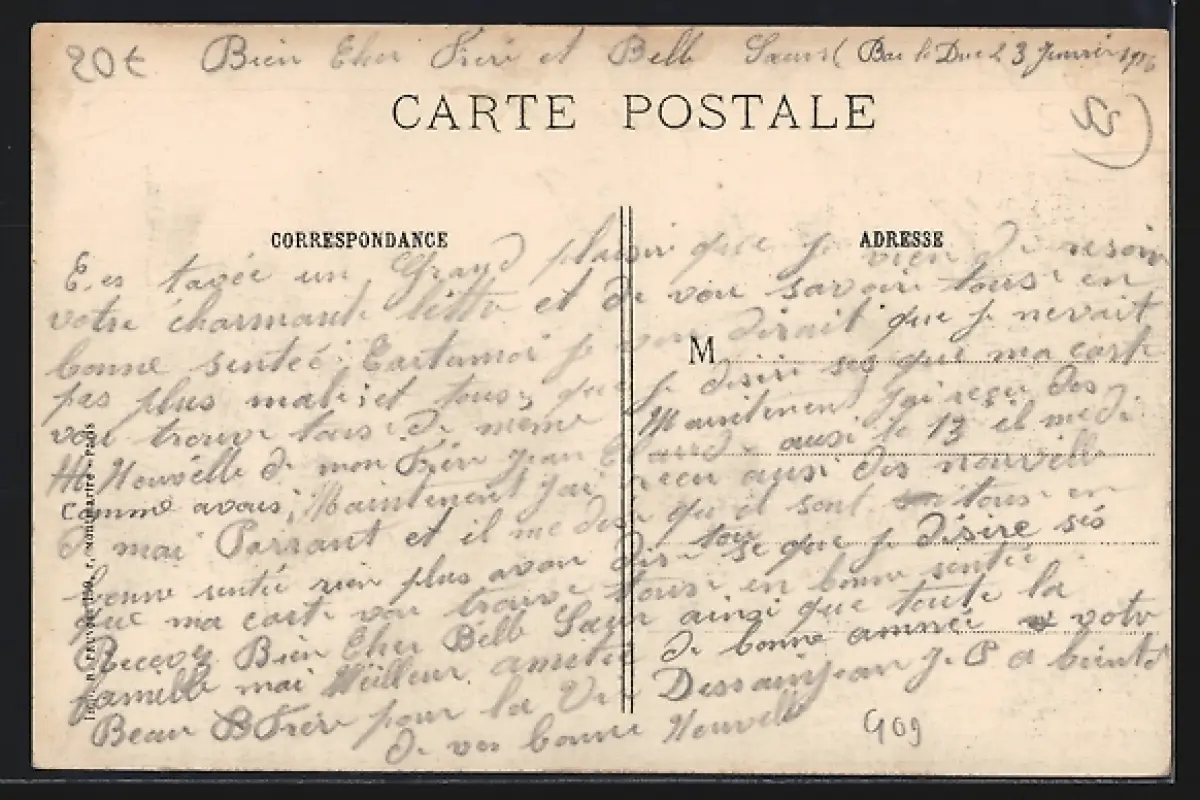 20€ Bien Cher Frere et Belle Sœurs ( Bar le Duc le 3 Janvier 1916
CARTE POSTALE
CORRESPONDANCE
ADRESSE
M
C, es tavec un Grand plaisir que je vien de resoir
votre charmante lettre et de vou savoir tous en
bonne sentée. Cartamoi je vou dirait que je nevait
pas plus mal, et tous que je désire ses que ma carte
vou trouve tous de meme Maintenent J'ai reçu des
Nouvelle de mon Frere Jean aussi le 13 il me di
comme avous, Maintenent J'ai reçu ausi des nouvelle
de mai Parrant et il me dise qu il sont tous en
bonne sentée rien plus avou dir se que je désire sès
que ma cart vou trouve tous en bonne sentée
Recevez Bien Cher Belle Sœur ainsi que toute la
famille mai Meilleur ametié de bonne amnée votr
Beau Frere pour la Vie Dessainjean J. P a biento
de vos bonne Nouvelle
909